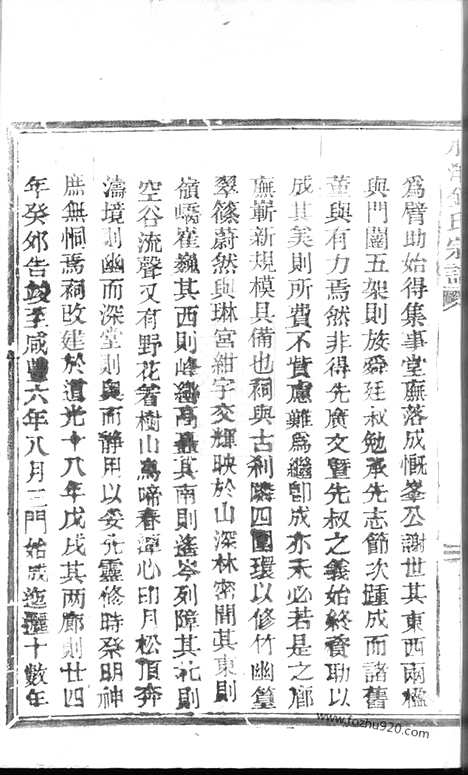 為臂助始得集事堂廡落成慨峯公謝世其東西兩楹
與門闥五架則族舜廷叔勉承先志節次踵成而諸舊
董與有力焉然非得先廣文暨先叔之義始終資助以
成其美則所費不貲慮難為繼卽成亦未必若是之廊
廡嶄新規模具備也祠與古刹隣四圍環以修竹幽篁
翠篠蔚然與琳宮紺宇交輝映於山深林密間其東則
嶺嶠崔巍其西則峰巒高矗其南則遙岑列障其北則
空谷流聲又有野花著樹山鳥啼春潭心印月松頂奔
濤境則幽而深堂則奧而靜用以妥先靈修時祭明神
庶無恫焉祠改建於道光十八年戊戌其兩廊則廿四
年癸卯告竣至咸豐六年八月三門始成迤邐十數年
氏宗譜
www.fozhu920.com